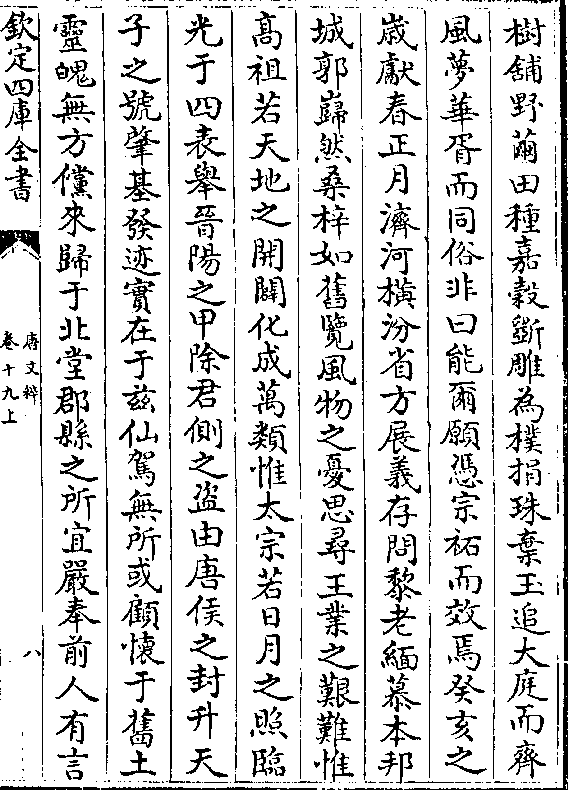 樹舖野繭田種嘉穀斵雕為樸捐珠棄玉追大庭而齊
風夢華胥而同俗非曰能爾願憑宗祏而效焉癸亥之
歳獻春正月濟河横汾省方展義存問黎老緬慕本邦
城郭巋然桑梓如舊覽風物之憂思尋王業之艱難惟
髙祖若天地之開闢化成萬類惟太宗若日月之照臨
光于四表舉晉陽之甲除君側之盜由唐侯之封升天
子之號肇基發迹實在于兹仙駕無所或顧懷于舊土
靈魄無方儻來歸于北堂郡縣之所宜嚴奉前人有言
欽定四庫全書
唐文粹
卷十九上
八